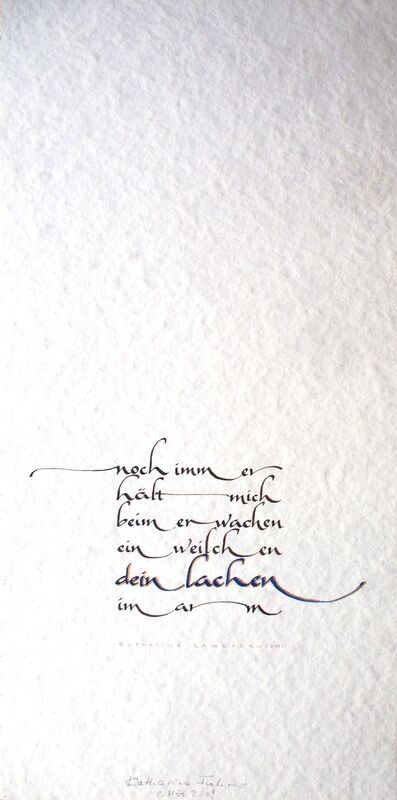 noch immer
hält mich
beim erwachen
ein weilchen
dein lachen
im arm
KATHARINA LANFRANCONI
Katharina
2009